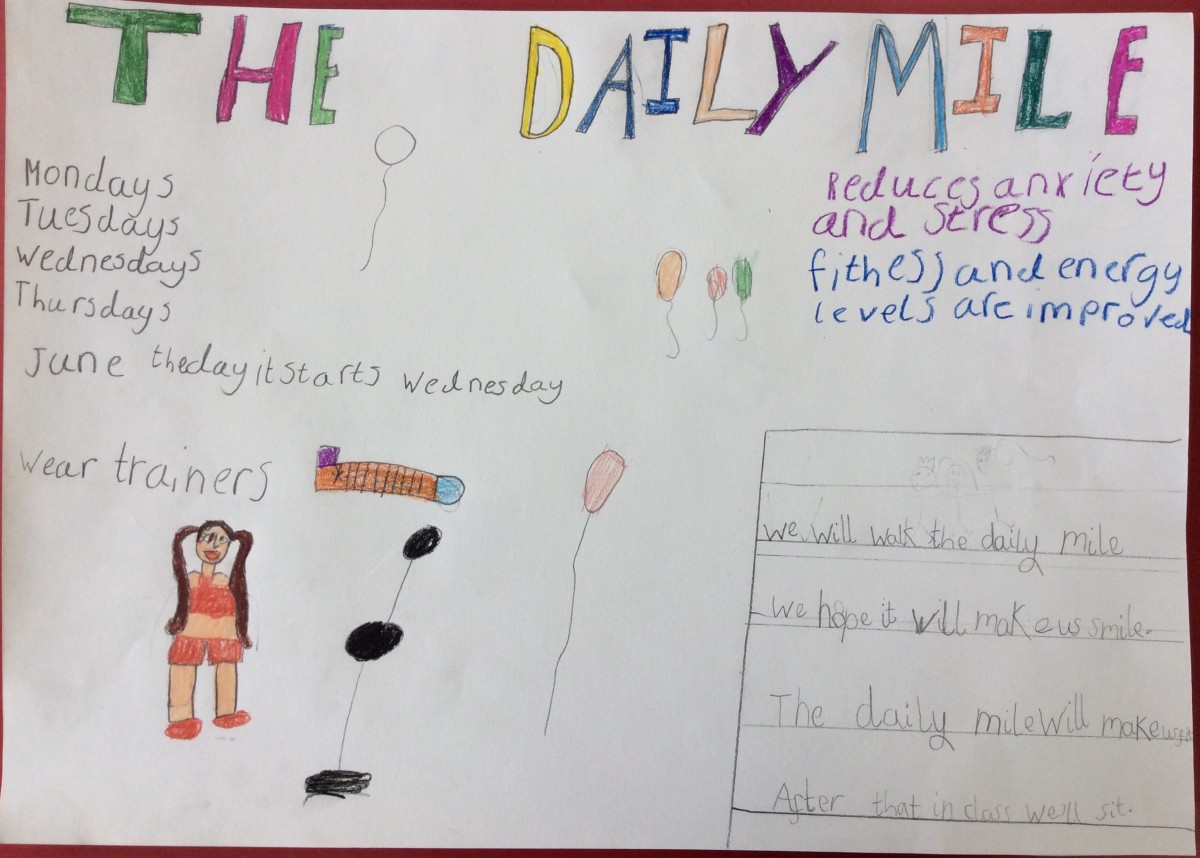 THE DAILY MILE
Mondays
Tuesdays
Wednesdays
Thursdays
June the day it starts Wednesday
Wear trainers
Reduces anxiety
and stress
fitness and energy
levels are improved
We will walk the daily mile
We hope it will make us smile.
The daily mile will make us fit
After that in class we'll sit.